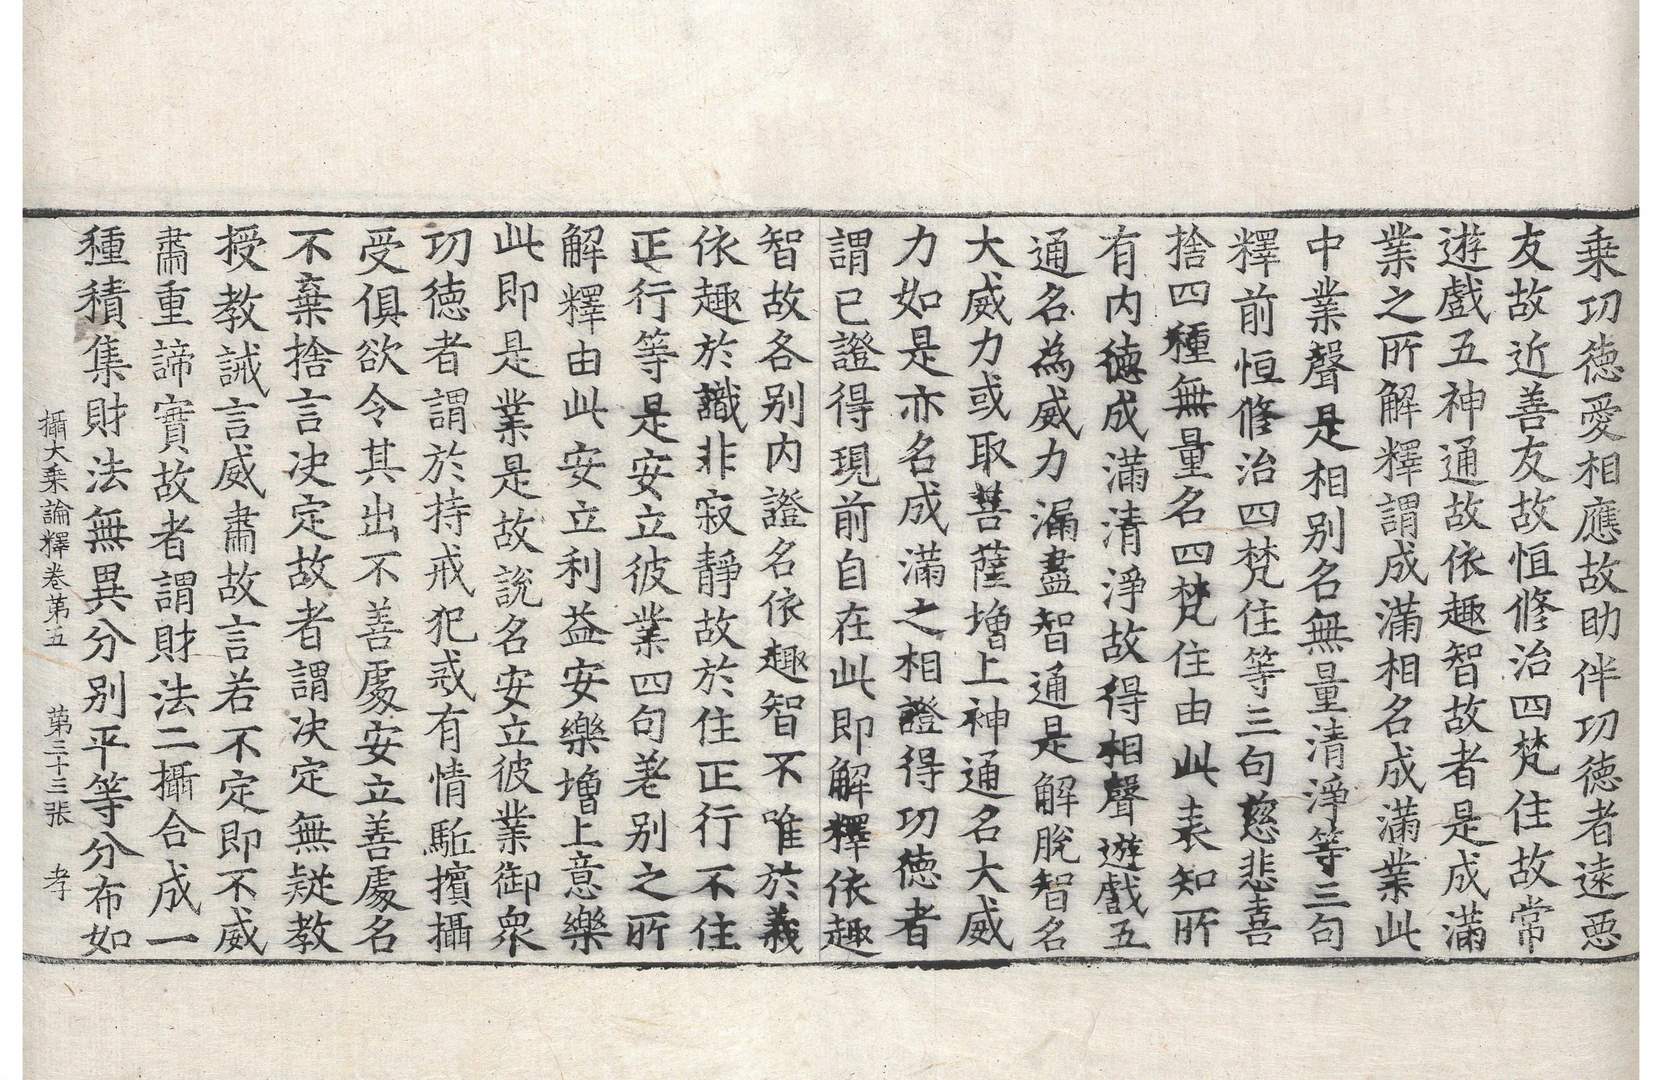 乗功徳愛相應故助伴功徳者遠惡
友故近善友故恒修治四梵住故常
遊戲五神通故依趣智故者是成滿
業之所解釋謂成滿相名成滿業此
中業聲是相別名無量清淨等三句
釋前恒修治四梵住等三句慈悲喜
捨四種無量名四梵住由此表知所
有内徳成滿清淨故得相聲遊戲五
通名為威力漏盡智通是解脫智名
大威力或取菩薩増上神通名大威
力如是亦名成滿之相證得功徳者
謂已證得現前自在此即解釋依趣
智故各別内證名依趣智不唯於義
依趣於識非寂靜故於住正行不住
正行等是安立彼業四句差別之所
解釋由此安立利益安樂増上意樂
此即是業是故說名安立彼業御衆
功徳者謂於持戒犯戒有情駈擯攝
受俱欲令其出不善處安立善處名
不棄捨言決定故者謂決定無疑教
授教誡言威肅故言若不定即不威
肅重諦實故者謂財法二攝合成一
種積集財法無異分別平等分布如
攝大乗論釋卷第五 第三十三張 孝